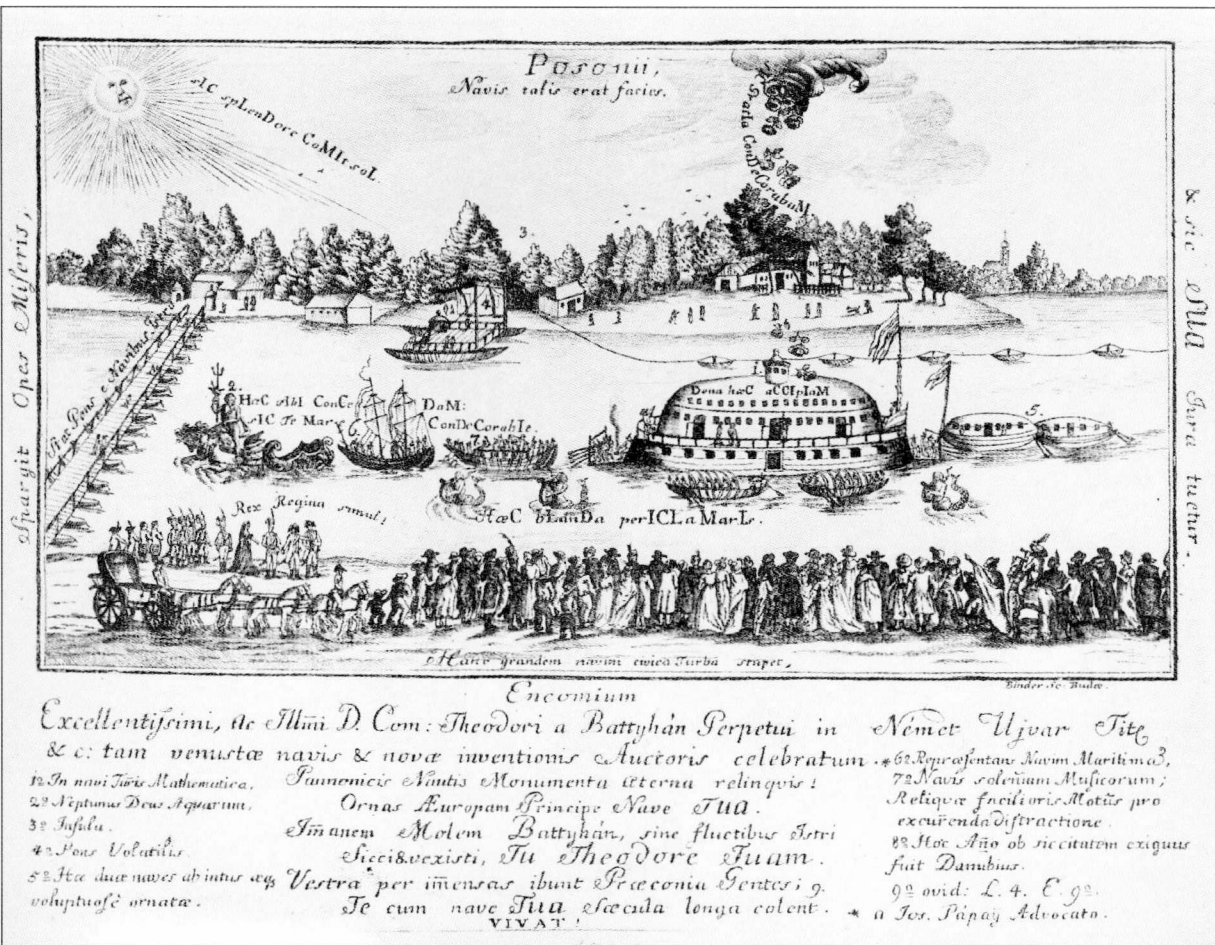 Posonii,
Navis talis erat facies.
sIC spLenDore CoMIs soL.
ConDeCorabaM
Spargit Opes Miseris,
& sic SUA Jura tuetur.
3.
4
Stat Pons e Navibus
2.
HæC ConCe
DaM:
sIC Te Mar
ConDeCorabIt.
6
7
1.
Dona hæC aCCIpIaM
5.
Rex Regina simul:
HæC bLanDa perICLa MarIs.
Hanc grandem navim civica Turba stupet,
Binder sc. Budæ.
Encomium
Excellentissimi, Ac Illmi D. Com: Theodori a Battyhán Perpetui in Német Ujvar Titt
& c: tam venustæ navis & novæ inventionis Auctoris celebratum. *
1º In navi Turis Mathematica.
2º Neptunus Deus Aquarum.
3º Insula.
4º Pons Volatilis.
5º Hæ duæ naves ab intus æq;
voluptuosè ornatæ.
Pannonicis Nautis Monumenta æterna relinqvis!
Ornas Æuropam Principe Nave TUA.
Imanem Molem Battyhán, sine fluctibus Istri
Sicci 8. vexisti, Tu Theodore Tuam.
Vestra per imensas ibunt Præconia Gentes; 9.
Te cum nave TUA Sæcula longa calent.
VIVAT!
6º Repræsentans Navim Maritimã,
7º Navis solenium Musicorum;
Reliquæ facilioris Motûs pro
excurenda distractione.
8º Hoc Año ob siccitatem exiguus
fuit Danubius.
9º ovid: L. 4. E. 9º.
* a Jos. Pápay Advocato.